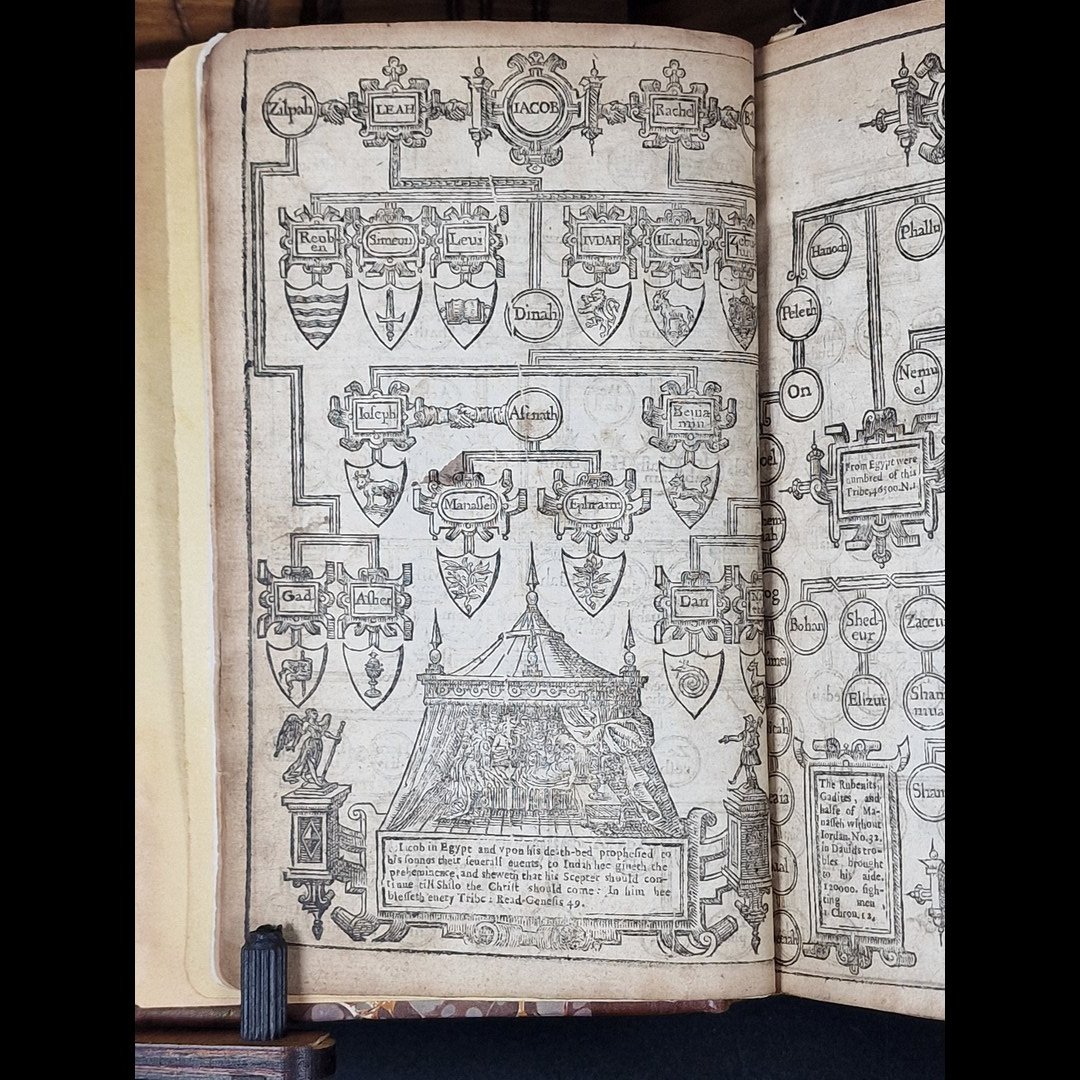 Zilpah
LEAH
IACOB
Rachel
Reub
en
Simeon
Leui
IVDAH
Issachar
Dinah
Ioseph
Asenath
Benia
min
Manasseh
Ephraim
Gad
Asher
Dan
Iacob in Egypt and vpon his death-bed prophesied to
his sonnes their seuerall euents, to Iudah hee giueth the
preheminence, and sheweth that his Scepter should con-
tinue till Shilo the Christ should come: In him hee
blesseth euery Tribe: Read Genesis 49.
Hanoch
Phallu
Peleth
On
Nemu
el
From Egypt were
numbred of this
Tribe, 46500. N. 1.
Bohan
Shed-
eur
Zaccu
Elizur
Sham
mua
The Rubenits,
Gadites, and
halfe of Ma-
nasseh without
Iordan. No. 32.
in Dauids tro-
bles brought
to his aide,
120000. figh-
ting men,
1. Chron. 12,